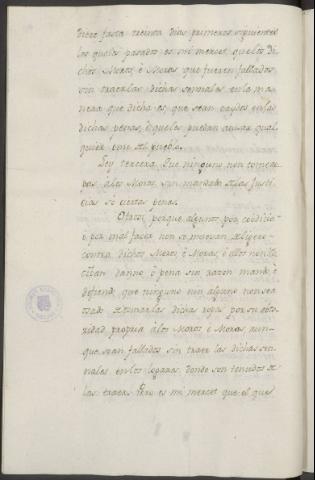 dicho fasta treinta dias primeros siguientes
los quales pasados es mi merced que los di-
chos Moros, è Moras que fueren fallados
sin traer las dichas señales en la ma-
nera que dicha es, que sean caydos en las
dichas penas, è que les puedan acusar qual-
quier ome del pueblo.
Ley tercera. Que ninguno non tome ro-
pas à los Moros sin mandado de las Justi-
cias so ciertas penas.
Otrosi porque algunos por codicia
è por mal facer non se muevan de ligero
contra dichos Moros, è Moras, è ellos non re-
ciban danno è pena sin razon mando, è
defiendo, que ninguno nin alguno non sea
osado de tomarlas dichas ropas por su aucto-
ridad propria à los Moros è Moras, aun-
que sean fallados sin traer las dichas se-
ñales en los logares donde son tenudos de
las traer: Pero es mi merced que el que